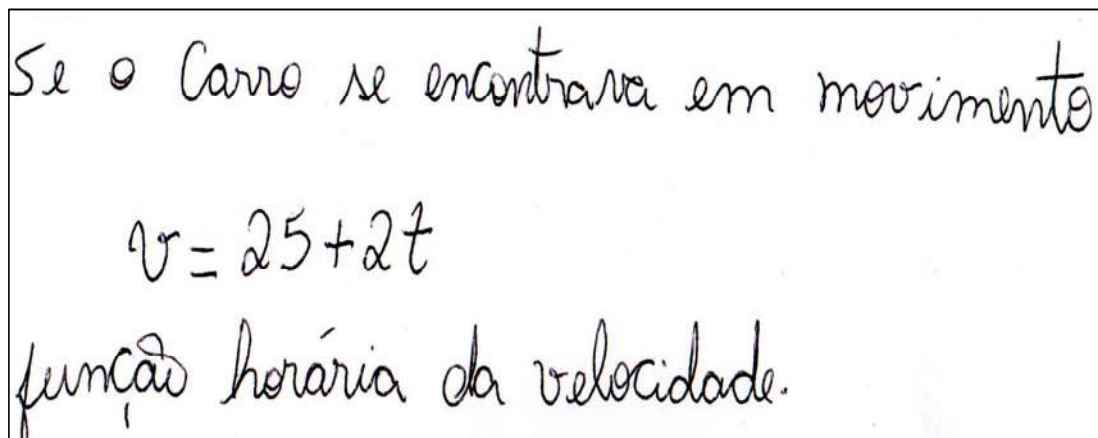 Se o Carro se encontrava em movimento
v = 25 + 2t
função horária da velocidade.